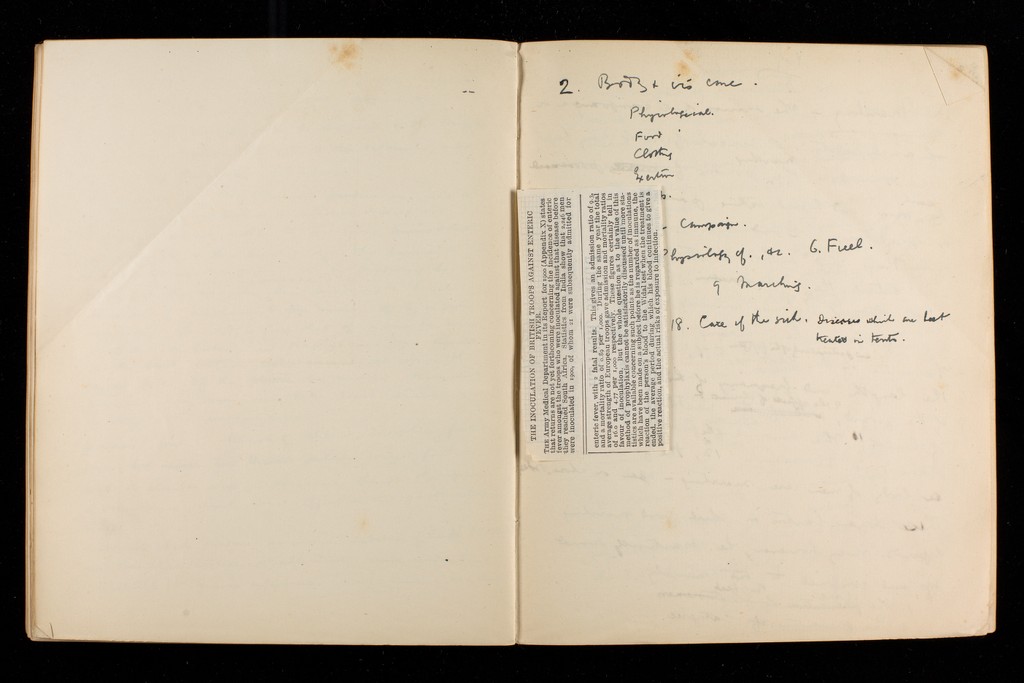 2. Body & its care.
Physiological.
Food
Clothing
Exertion
b.
- Campaign.
Physiology of, &c. G. Fuel.
9 Marching.
18. Care of the sick. Diseases which are best
treated in tents.
THE INOCULATION OF BRITISH TROOPS AGAINST ENTERIC
FEVER.
THE Army Medical Department in its Report for 1900 (Appendix X) states
that returns are not yet forthcoming concerning the incidence of enteric
fever amongst the troops who were inoculated against that disease before
they reached South Africa. Statistics from India show that 2,246 men
were inoculated in 1900, of whom 21 were subsequently admitted for
enteric fever, with 2 fatal results. This gives an admission ratio of 9.3,
and a mortality ratio of 0.89 per 1,000. During the same year the total
average strength of European troops gave admission and mortality ratios
of 16.0 and 4.77 per 1,000 respectively. These figures certainly tell in
favour of inoculation. But the whole question as to the value of this
method of prophylaxis cannot be satisfactorily discussed until more sta-
tistics are available concerning such points as the number of inoculations
which have been made on a subject before he is regarded as immune, the
reaction of the person's blood to the Widal test when the treatment is
ended, the average period during which his blood continues to give a
positive reaction, and the actual risks of exposure to infection.